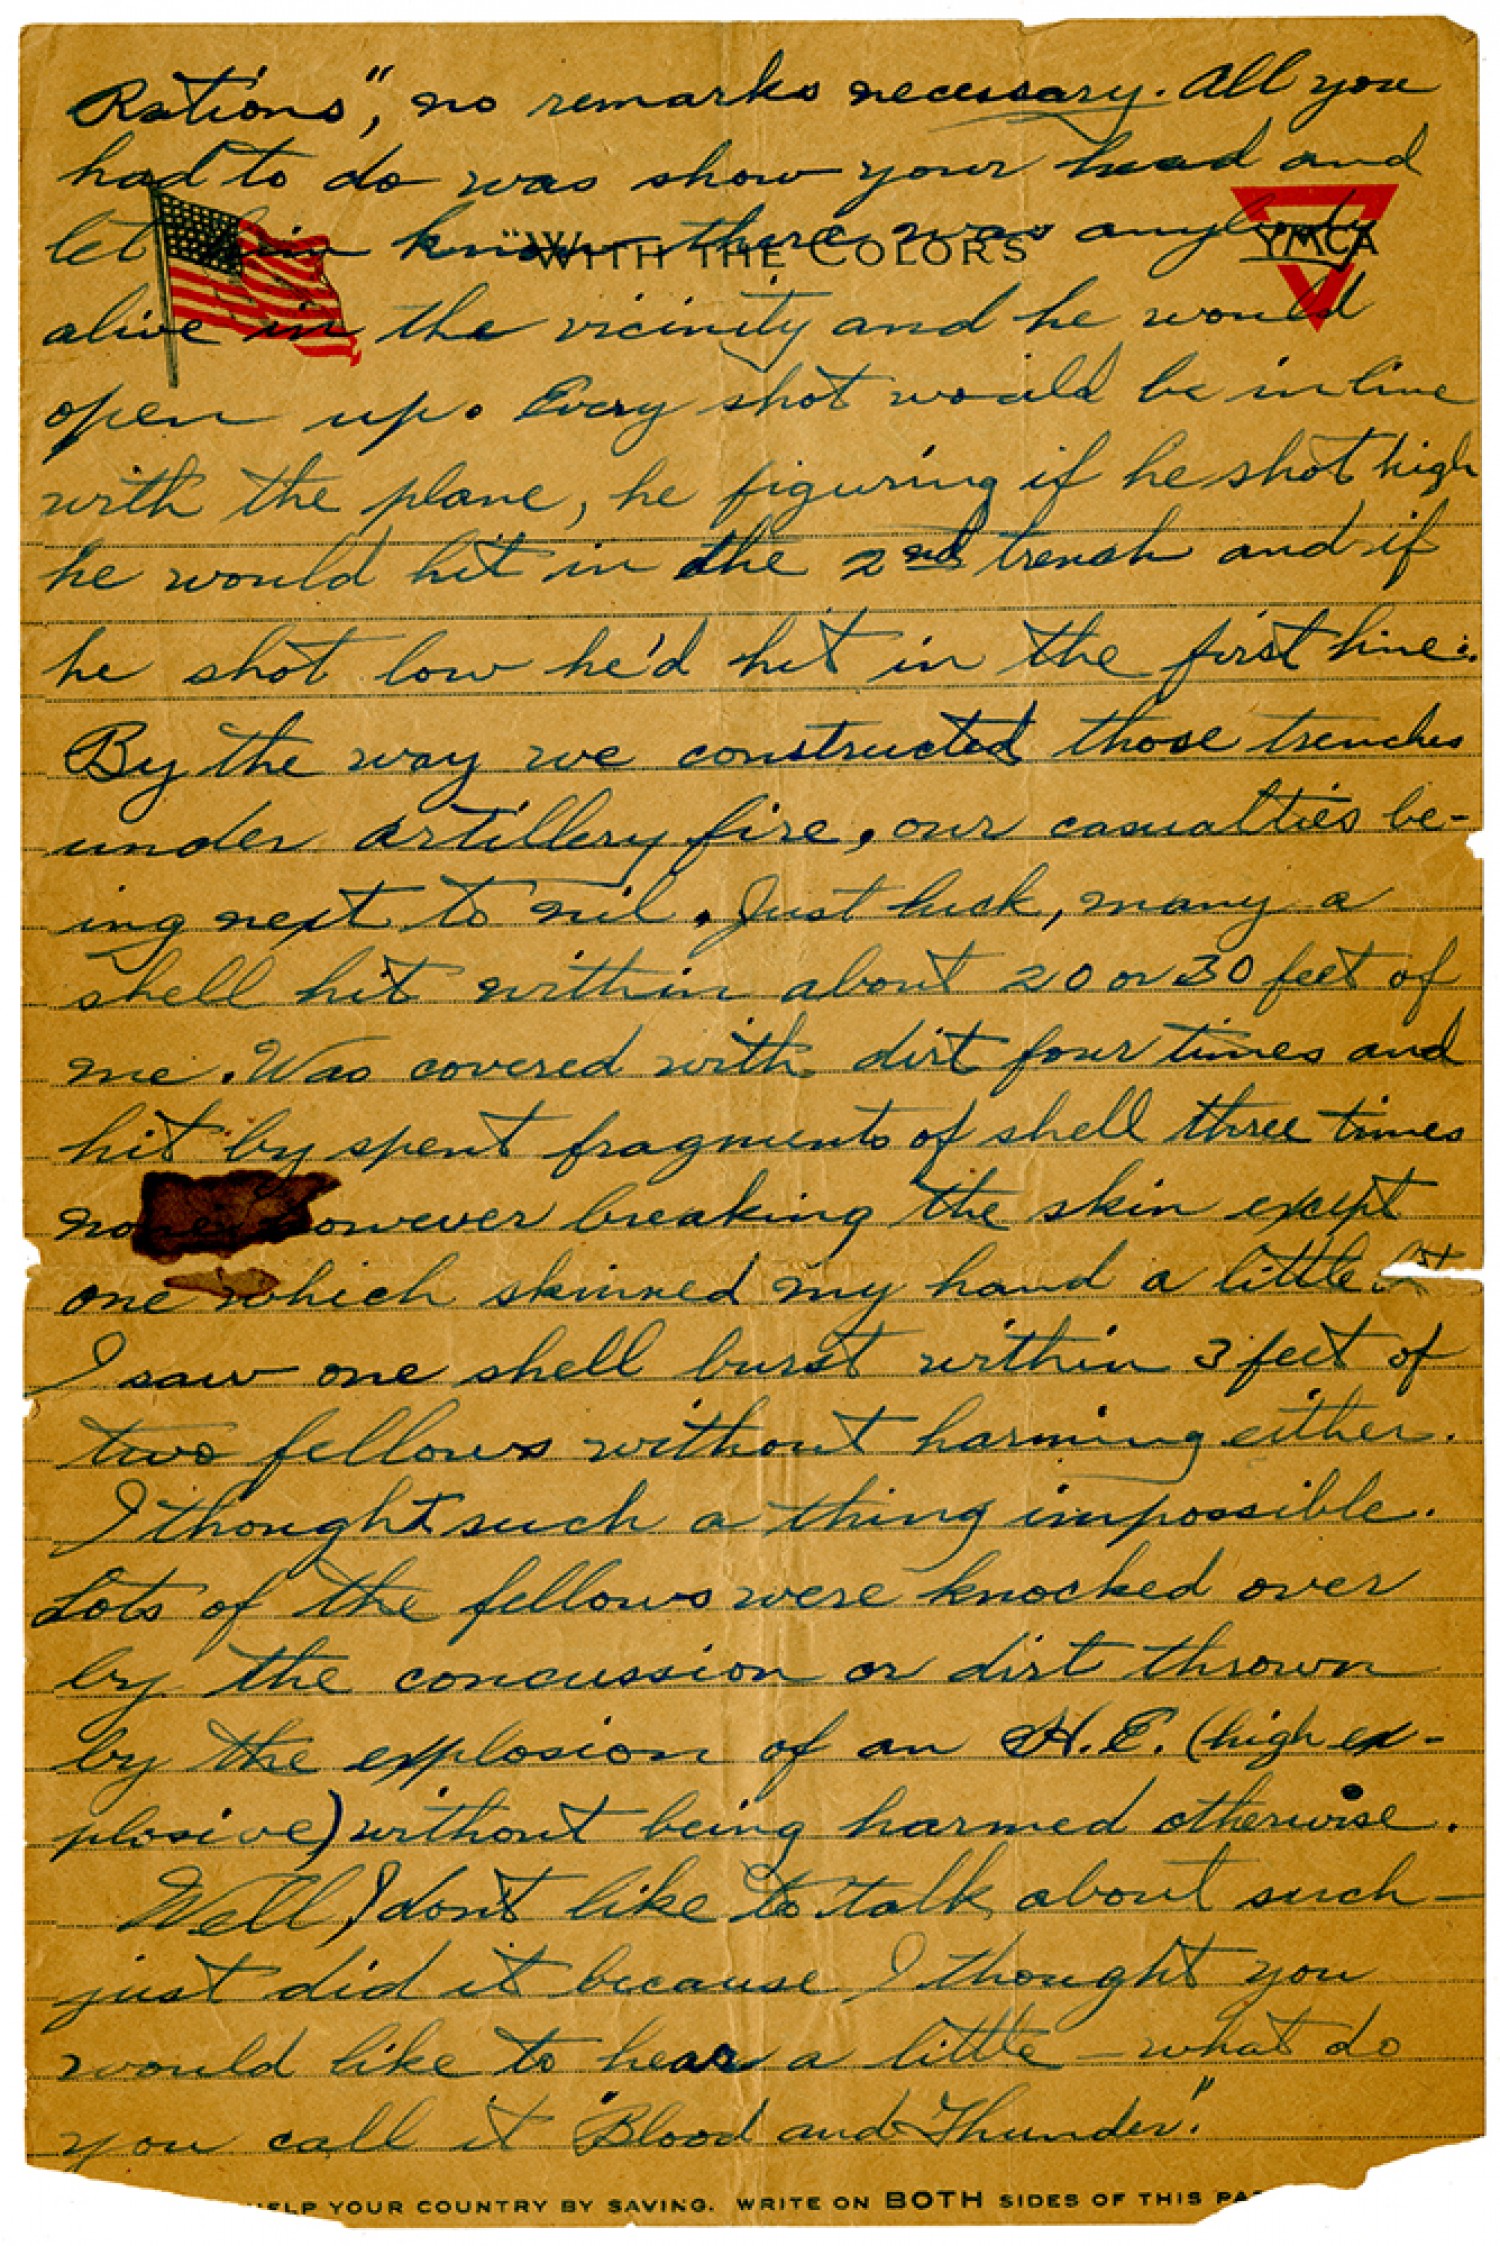 Rations", no remarks necessary. All you
had to do was show your head and
let him know there was anybody
"WITH THE COLORS"
YMCA
alive in the vicinity and he would
open up. Every shot would be in line
with the plane, he figuring if he shot high
he would hit in the 2nd trench and if
he shot low he'd hit in the first line.
By the way we constructed those trenches
under artillery fire, our casualties be-
ing next to nil. Just luck, many a
shell hit within about 20 or 30 feet of
me. Was covered with dirt four times and
hit by spent fragments of shell three times
none however breaking the skin except
one which skinned my hand a little.
I saw one shell burst within 3 feet of
two fellows without harming either.
I thought such a thing impossible.
Lots of the fellows were knocked over
by the concussion or dirt thrown
by the explosion of an H.E. (high ex-
plosive) without being harmed otherwise.
Well, I don't like to talk about such—
just did it because I thought you
would like to hear a little — what do
you call it "Blood and Thunder."
ELP YOUR COUNTRY BY SAVING. WRITE ON BOTH SIDES OF THIS PA